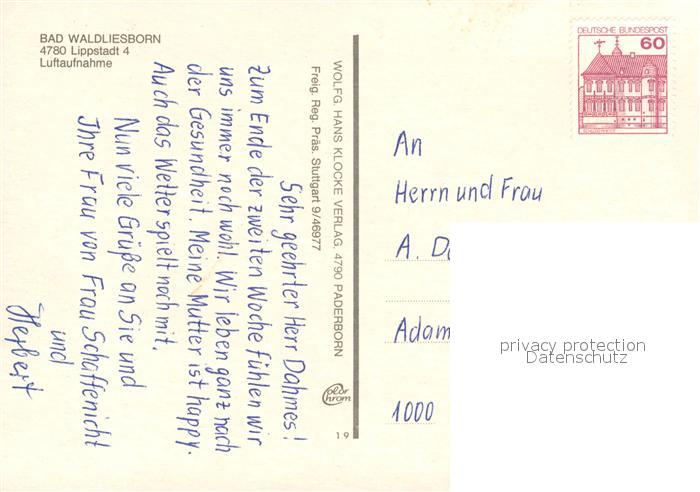 BAD WALDLIESBORN
4780 Lippstadt 4
Luftaufnahme
Sehr geehrter Herr Dahmes!
Zum Ende der zweiten Woche fühlen wir
uns immer noch wohl. Wir leben ganz nach
der Gesundheit. Meine Mutter ist happy.
Auch das Wetter spielt noch mit.
Nun viele Grüße an Sie und
Ihre Frau von Frau Schaffenicht
und
Herbert
WOLFG. HANS KLOCKE VERLAG, 4790 PADERBORN
Freig. Reg. Präs. Stuttgart 9/46977
color
chrom
19
DEUTSCHE BUNDESPOST
60
An
Herrn und Frau
A. Da
Adam
1000
privacy protection
Datenschutz